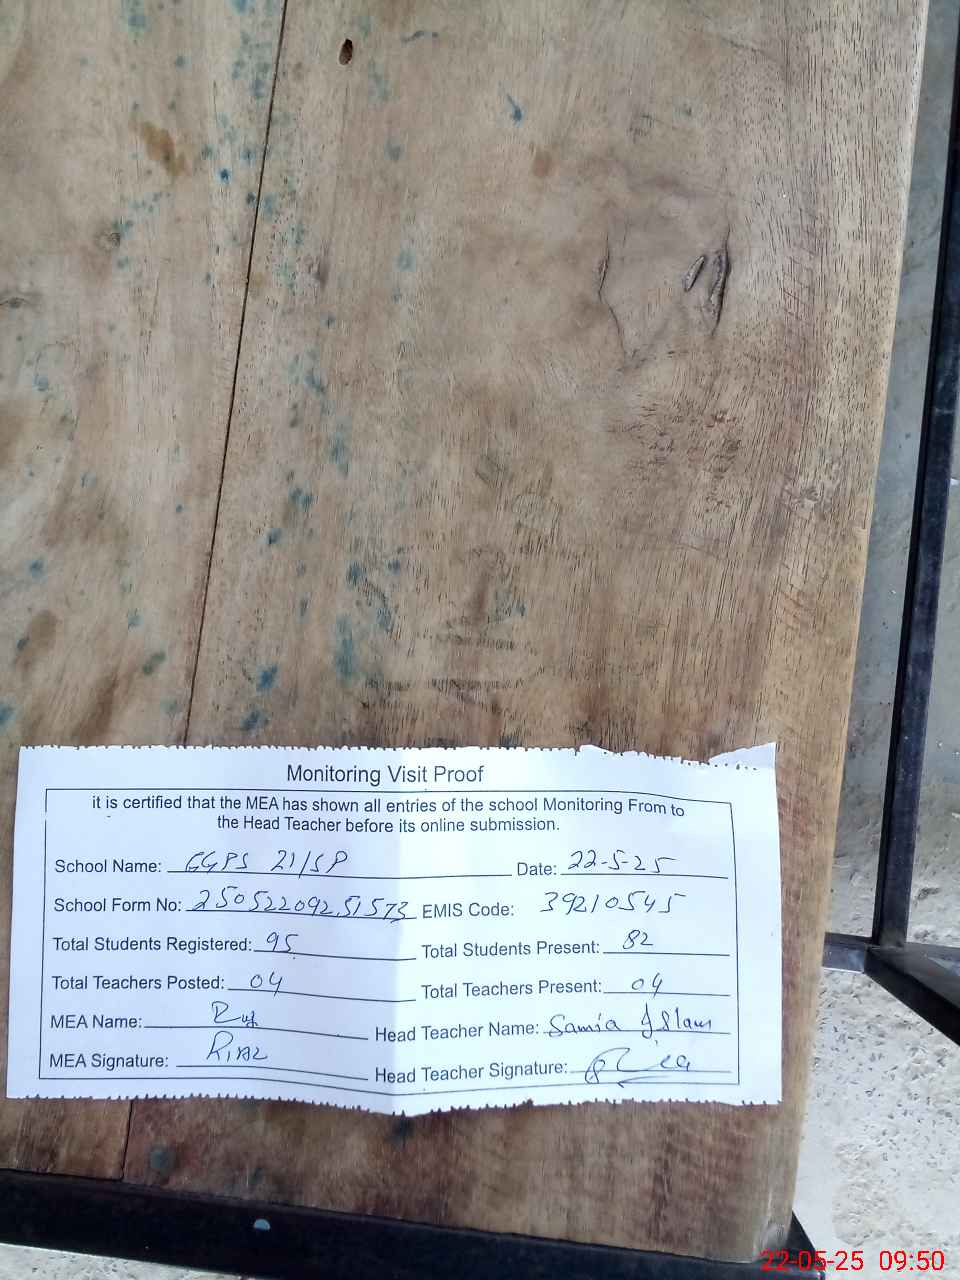 Monitoring Visit Proof
it is certified that the MEA has shown all entries of the school Monitoring From to
the Head Teacher before its online submission.
School Name: GGPS 21/SP Date: 22-5-25
School Form No: 25052209251573 EMIS Code: 39210545
Total Students Registered: 95 Total Students Present: 82
Total Teachers Posted: 04 Total Teachers Present: 04
MEA Name: Head Teacher Name: Samia Islam
MEA Signature: Riaz Head Teacher Signature:
22-05-25 09:50